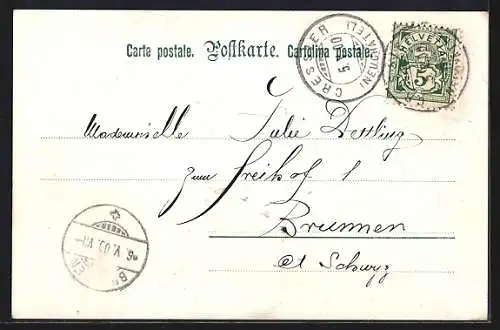 Carte postale. Postkarte. Cartolina postale.
CRESSIER
(NEUCHÂTEL)
HELVETIA
5
Mademoiselle Julie Dettling
zum Freihof 1
Brunnen
Ct Schwyz